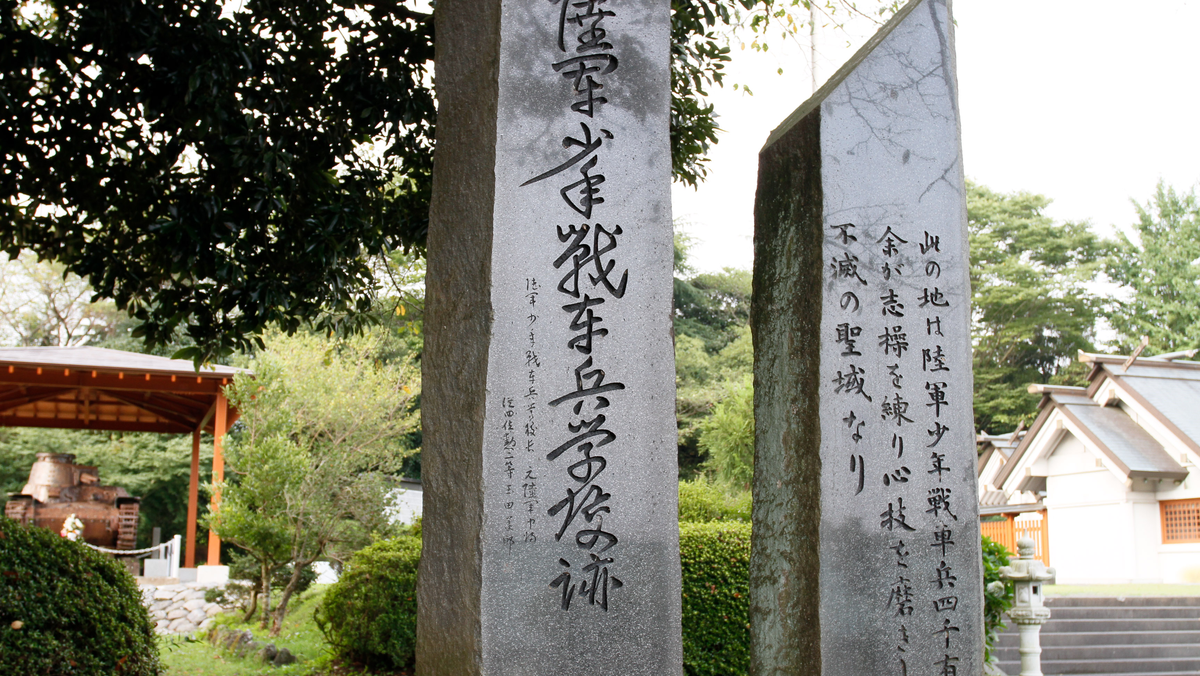 陸軍少年戦車兵学校跡
陸軍少年戦車兵学校長 元陸軍中将
従四位勲二等 玉田美郎
此の地は陸軍少年戦車兵四千有
余が志操を練り心技を磨きし
不滅の聖域なり